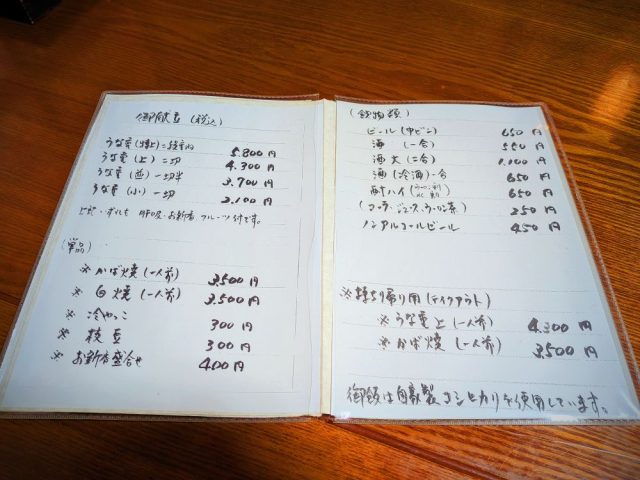 御献立 (税込)
うな重 (特上) 二段重ね 5.800円
うな重 (上) 二切 4.300円
うな重 (並) 一切半 3.700円
うな重 (小) 一切 2.100円
肝吸・お新香、フルーツ付です。
(単品)
※ かば焼 (一人前) 3,500円
※ 白焼 (一人前) 3,500円
※ 冷やっこ 300円
※ 枝豆 300円
※ お新香盛合せ 400円
(飲物類)
ビール (中ビン) 650円
酒 (一合) 550円
酒 大 (二合) 1.100円
酒 (冷酒) 一合 650円
酎ハイ 650円
(コーラ・ジュース・ウーロン茶) 250円
ノンアルコールビール 450円
※ 持ち帰り用 (テイクアウト)
※ うな重 上 (一人前) 4.300円
※ かば焼 (一人前) 3,500円
御飯は自家製コシヒカリを使用しています。